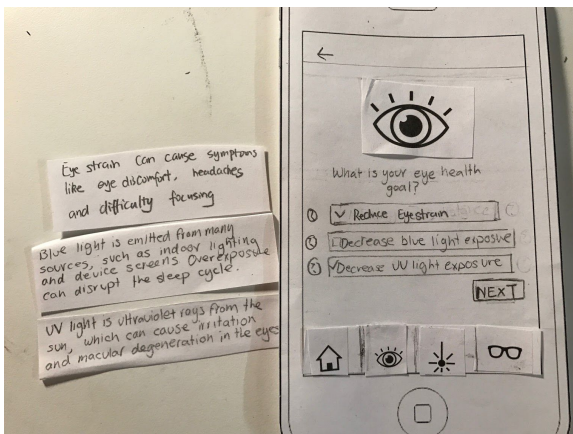 Eye strain can cause symptoms
like eye discomfort, headaches
and difficulty focusing
Blue light is emitted from many
sources, such as indoor lighting
and device screens. Overexposure
can disrupt the sleep cycle.
UV light is ultraviolet rays from the
sun, which can cause irritation
and macular degeneration in the eyes
What is your eye health
goal?
Reduce Eyestrain
Decrease blue light exposure
Decrease UV light exposure
NEXT